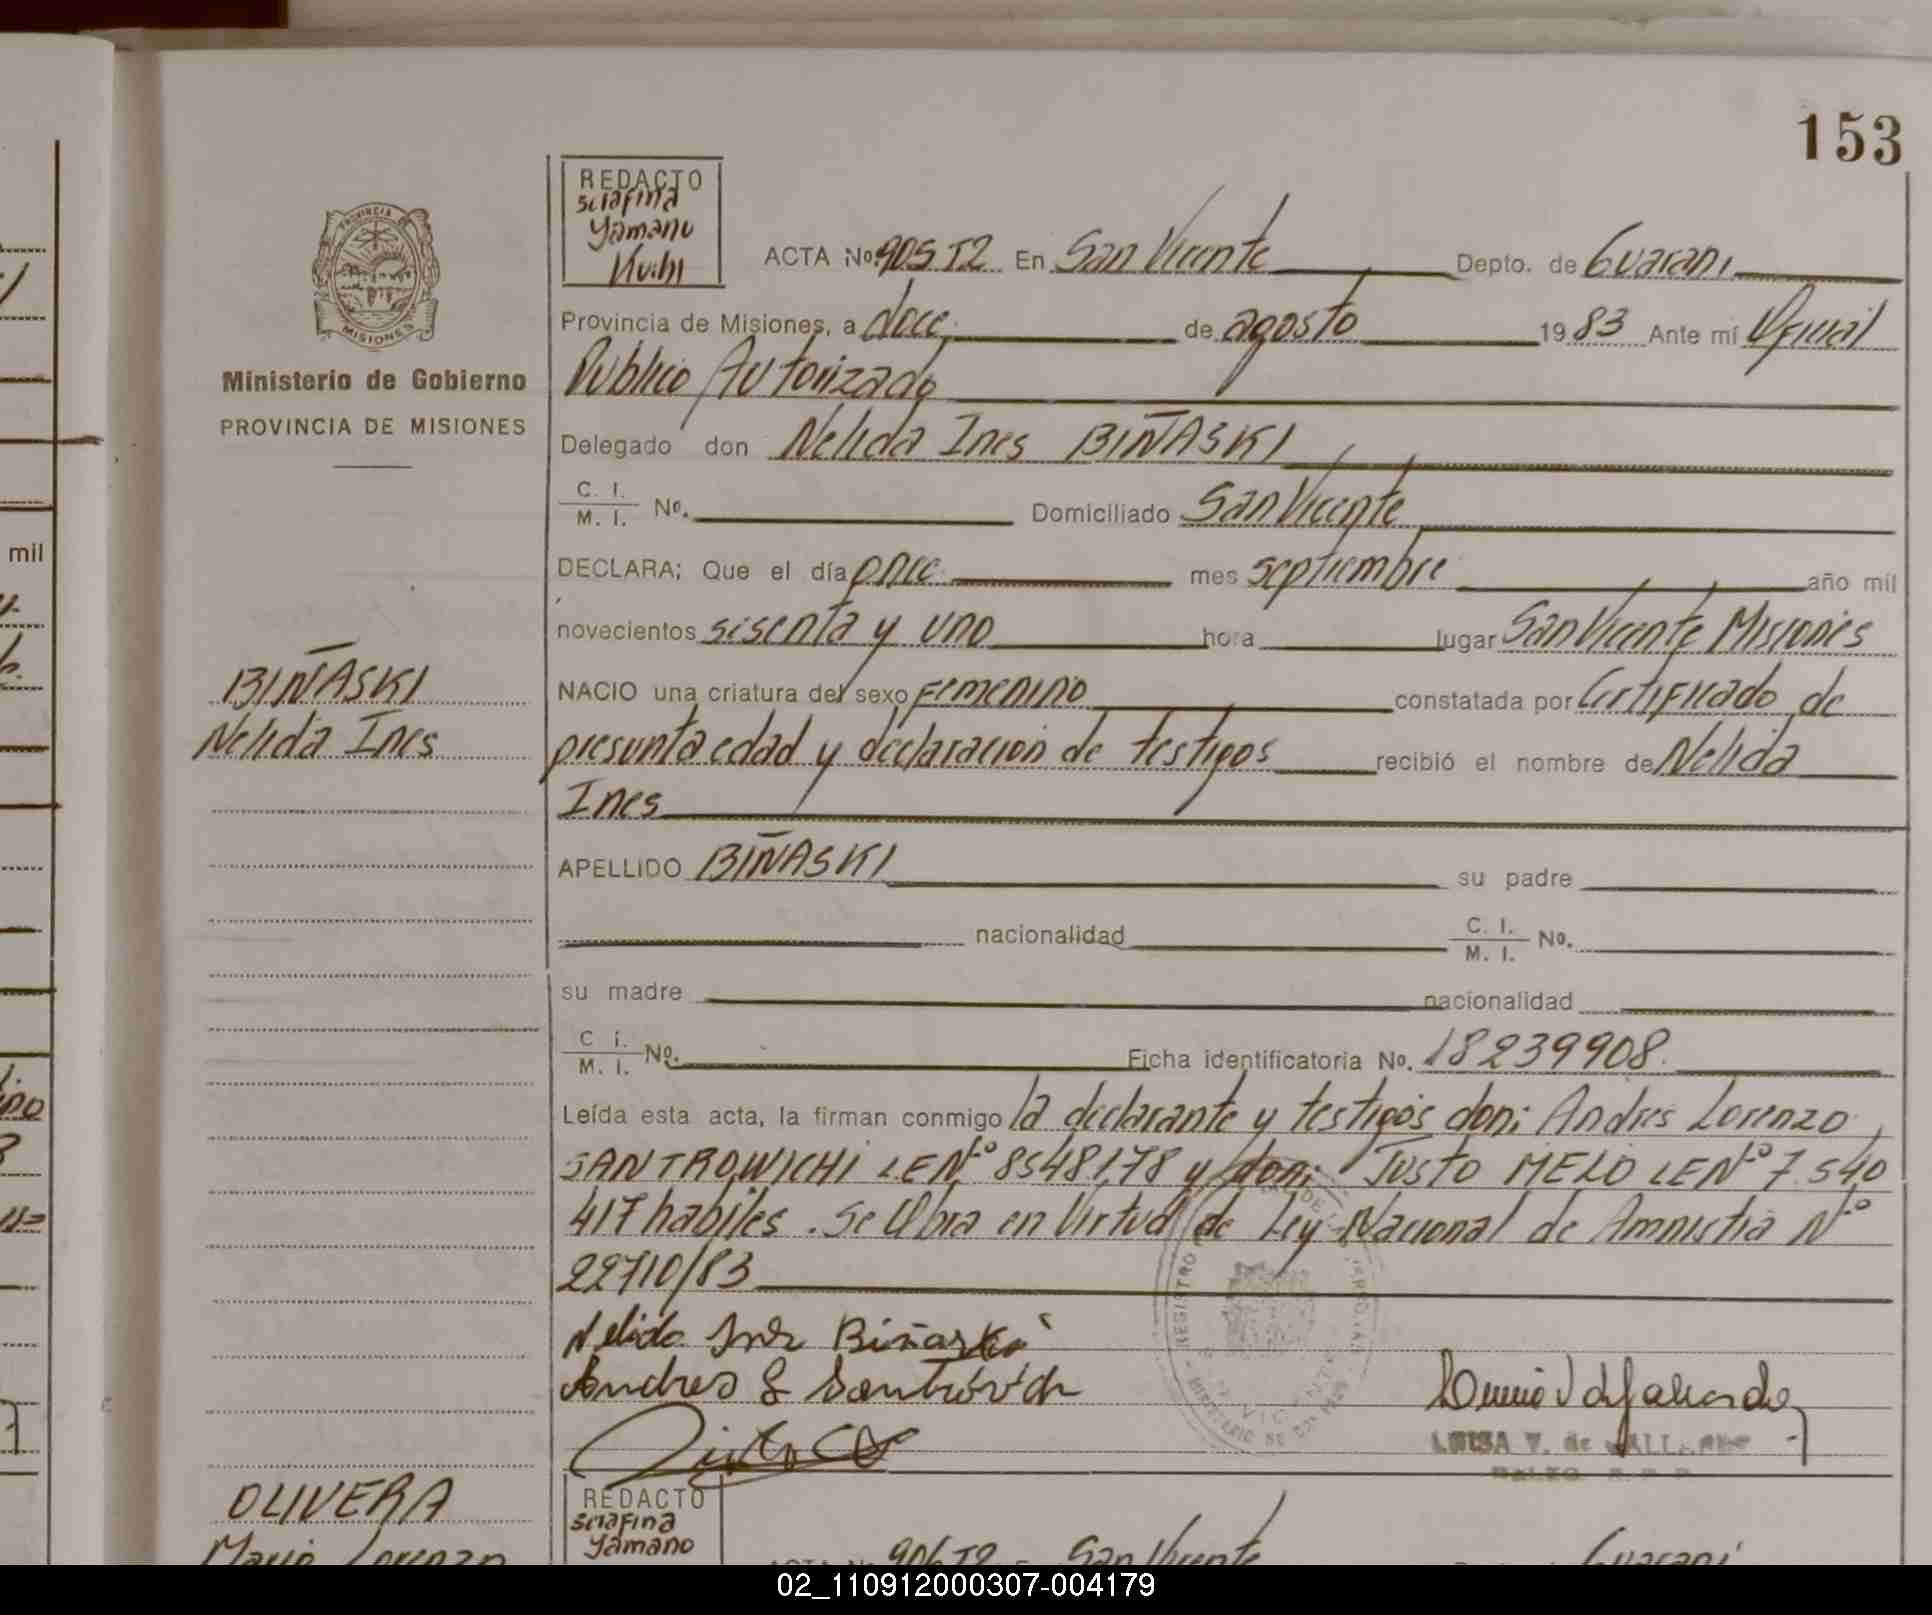 153
REDACTO
Serafina
Yamano
Kuihi
PROVINCIA DE
MISIONES
Ministerio de Gobierno
PROVINCIA DE MISIONES
ACTA No. 905 T2 En San Vicente Depto. de Guarani
Provincia de Misiones, a doce de agosto 1983 Ante mí Oficial
Publico Autorizado
Delegado don Nelida Ines BIÑASKI
C. I.
M. I. No. Domiciliado San Vicente
DECLARA; Que el día once mes septiembre año mil
novecientos sesenta y uno hora lugar San Vicente Misiones
NACIO una criatura del sexo Femenino constatada por Certificado de
presunta edad y declaracion de testigos recibió el nombre de Nelida
Ines
BIÑASKI
Nelida Ines
APELLIDO BIÑASKI su padre
nacionalidad C. I.
M. I. No.
su madre nacionalidad
C I.
M. I. No. Ficha identificatoria No. 18239908.
Leída esta acta, la firman conmigo la declarante y testigos don: Andres Lorenzo
SANTROWICHI LE Nº 8548178 y don: Justo MELO LE Nº 7.540
417 habiles. Se Obra en Virtud de Ley Nacional de Amnistia Nº
22710/83
Nelida Ines Biñaski
Andres L Santrovich
LUISA V. de GALLARDO
OLIVERA
Mario Lorenzo
REDACTO
Serafina
Yamano
ACTA No. 906 T2 En San Vicente Guarani
mil
02_110912000307-004179